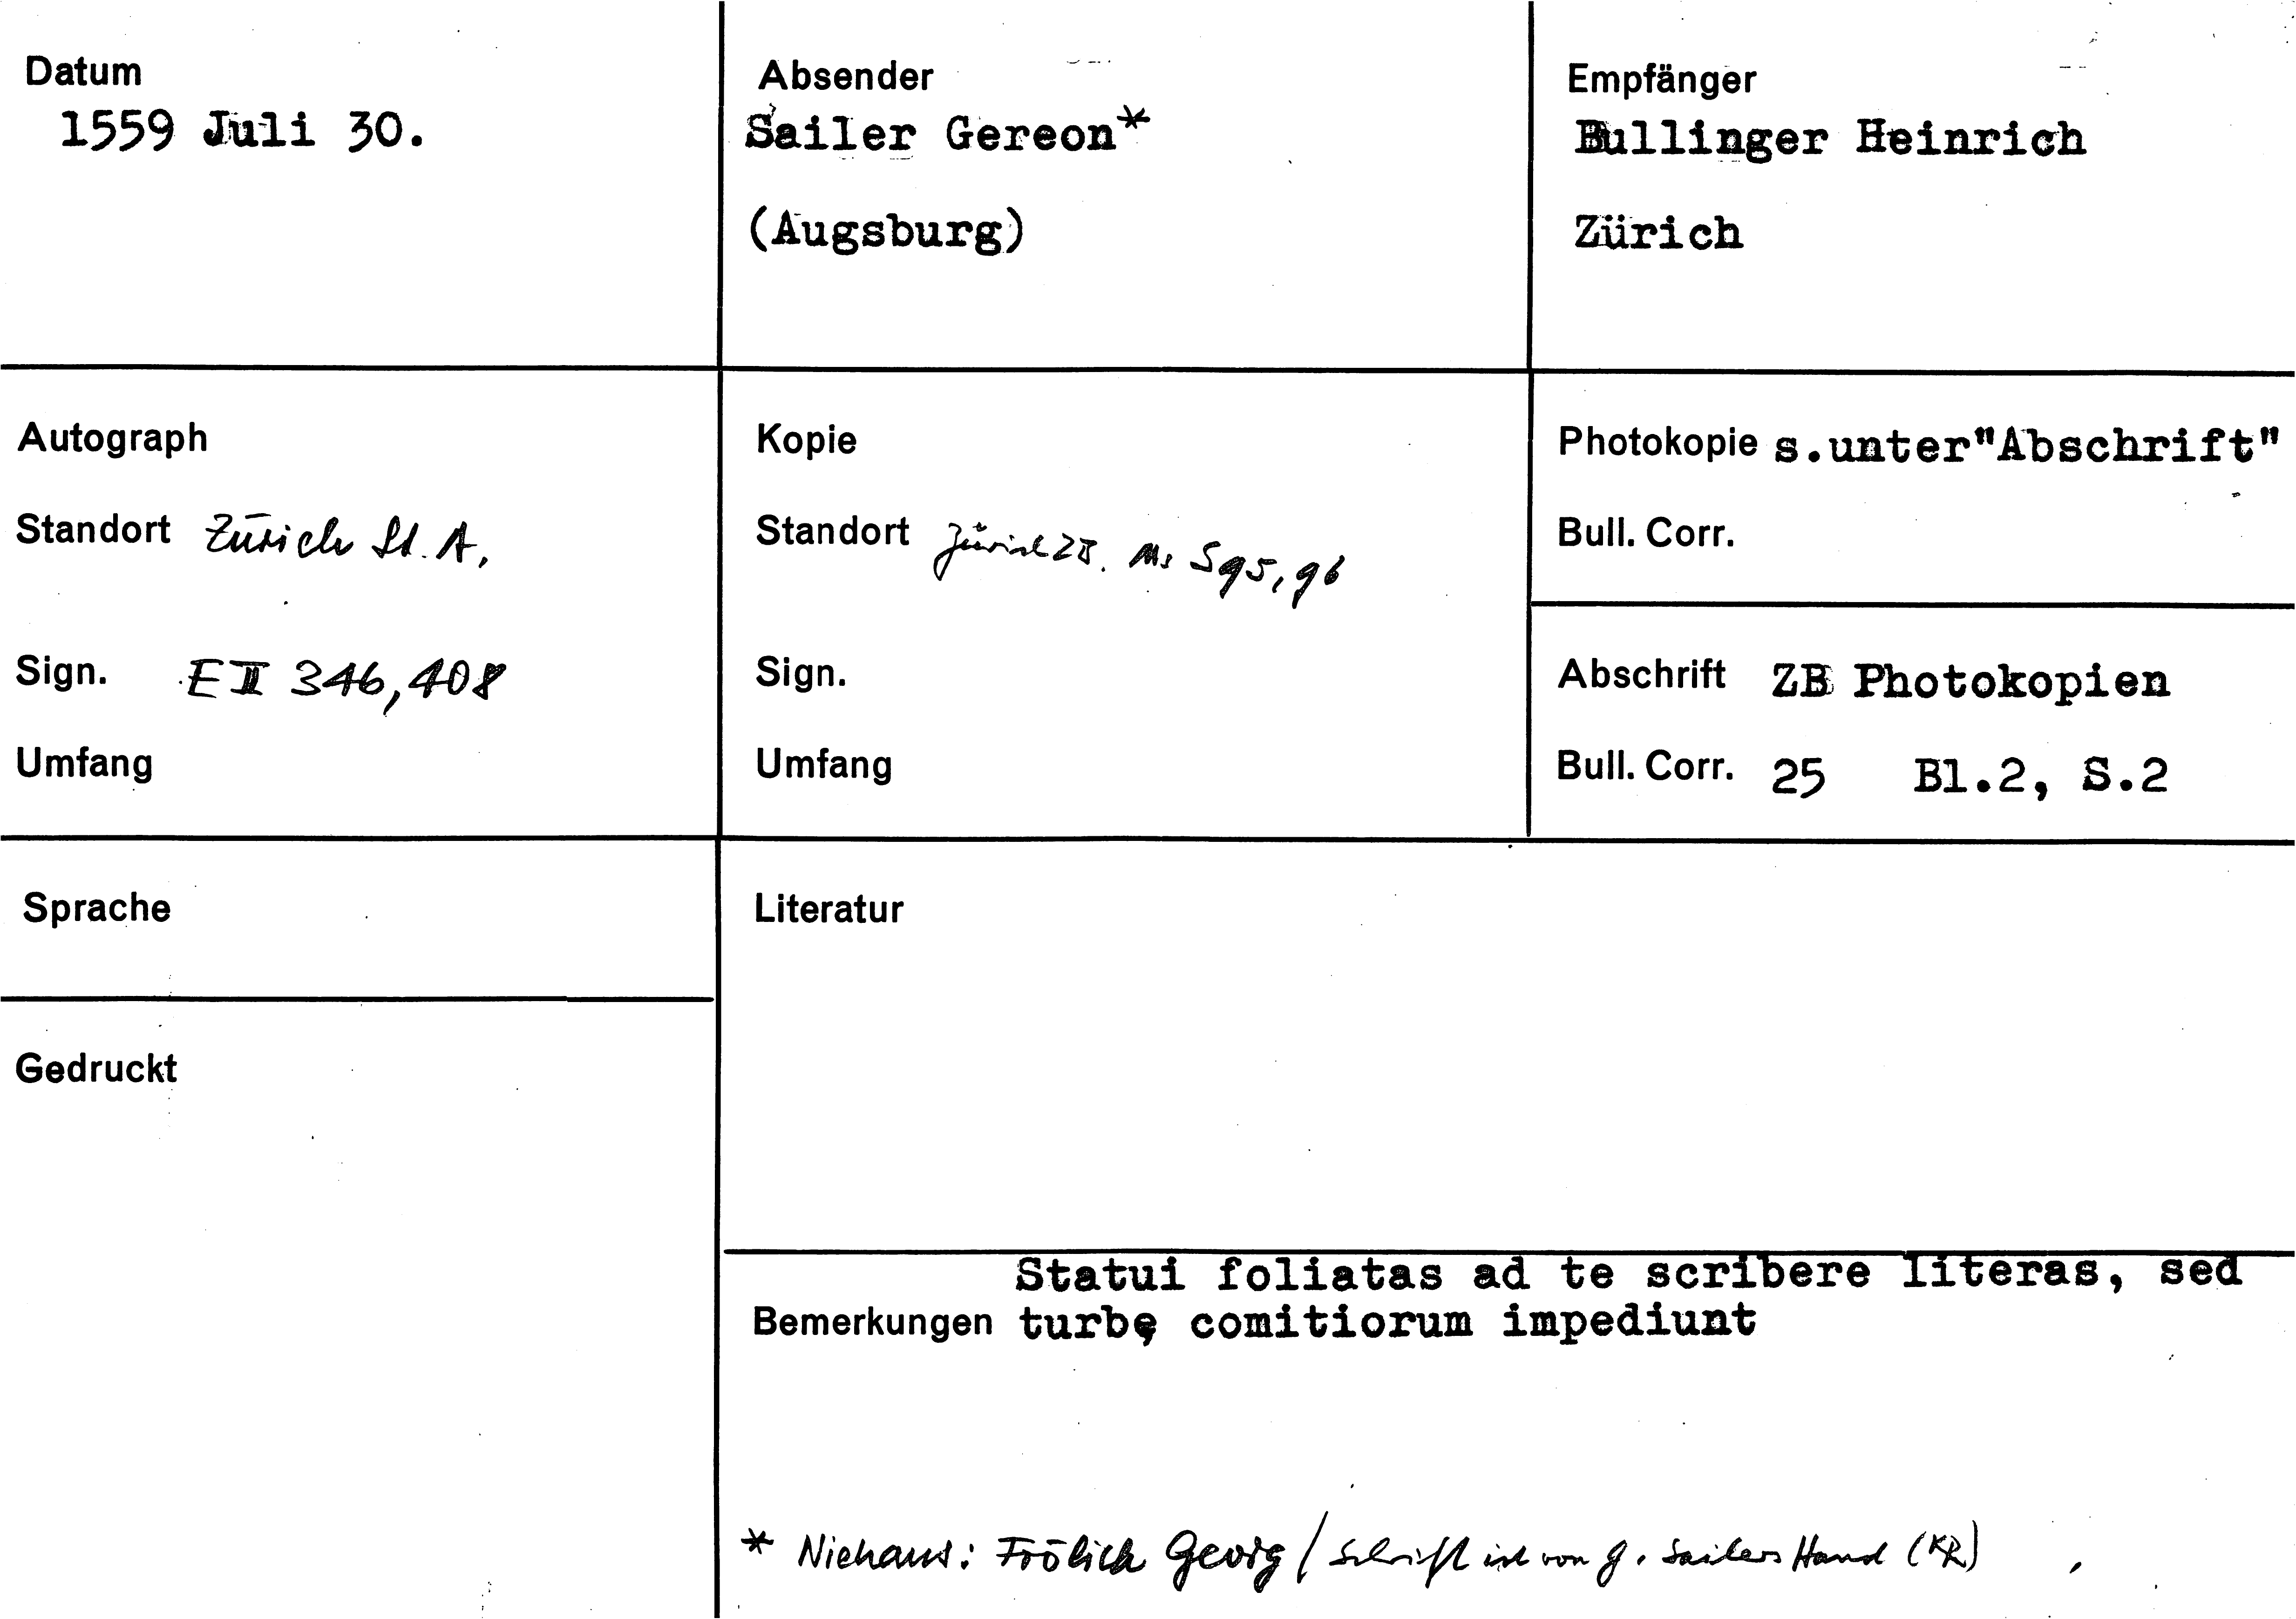 Datum
1559 Juli 30.
Absender
Sailer Gereon*
(Augsburg)
Empfänger
Bullinger Heinrich
Zürich
Autograph
Standort Zürich St. A.
Sign. E II 346, 408
Umfang
Kopie
Standort Zürich ZB. Ms S 95, 96
Sign.
Umfang
Photokopie s.unter"Abschrift"
Bull. Corr.
Abschrift ZB Photokopien
Bull. Corr. 25 Bl.2, S.2
Sprache
Gedruckt
Literatur
Statui foliatas ad te scribere literas, sed
Bemerkungen turbę comitiorum impediunt
* Niehaus: Frölich Georg / Schrift ist von G. Sailers Hand (KR)